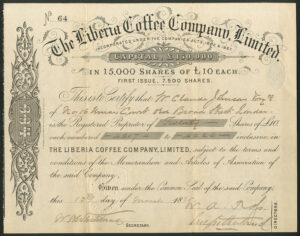 No. 64
The Liberia Coffee Company, Limited.
INCORPORATED UNDER THE COMPANIES ACTS
CAPITAL £150,000
IN 15,000 SHARES OF £10 EACH.
FIRST ISSUE, 7,500 SHARES.
This is to Certify that W. Claude Johnson Esqre
of No 16 Union Court Old Broad Street London
is the Registered Proprietor of Shares of £10
each numbered to inclusive, in
THE LIBERIA COFFEE COMPANY, LIMITED, subject to the terms and
conditions of the Memorandum and Articles of Association of
the said Company.
Given under the Common Seal of the said Company, this
day of March 18
SECRETARY.
DIRECTORS.